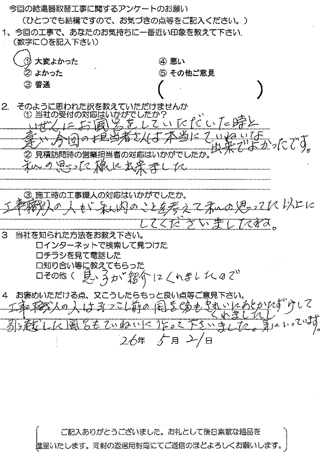 今回の給湯器取替工事に関するアンケートのお願い
(ひとつでも結構ですので、お気づきの点等をご記入ください。)
1、今回の工事で、あなたのお気持ちに一番近い印象を教えて下さい。
(数字に○を記入下さい)
① 大変よかった ④ 悪い
② よかった ⑤ その他ご意見
③ 普通 ( )
2. そのように思われた訳を教えていただけませんか
① 当社の受付の対応はいかがでしたか?
いぜんにお風呂をしていただいた時と
違い今回の担当者さんは本当にていねいな
出来でよかったです。
② 見積訪問時の営業担当者の対応はいかがでしたか?
私の思った様に出来ました
③ 施工時の工事職人の対応はいかがでしたか?
工事職人の人が案内のことを考えて私の思ってた以上に
してくださいましたよ。
3 当社を知られた方法をお教え下さい。
□インターネットで検索して見つけた
□チラシを見て電話した
□知り合い等に教えてもらった
□その他( 息子が紹介してくれましたので
4 お褒めいただける点、又こうしたらもっと良い点等ご意見下さい。
工事職人の人は
前の風呂
きれいにあとかたずけして
くれました
風呂もていねいに作って下さいました。気に入っています。
26年 5月 21日
ご記入ありがとうございました。お礼として後日素敵な粗品を
進呈いたします。同封の返信用封筒にてご返信のほどよろしくお願いします。